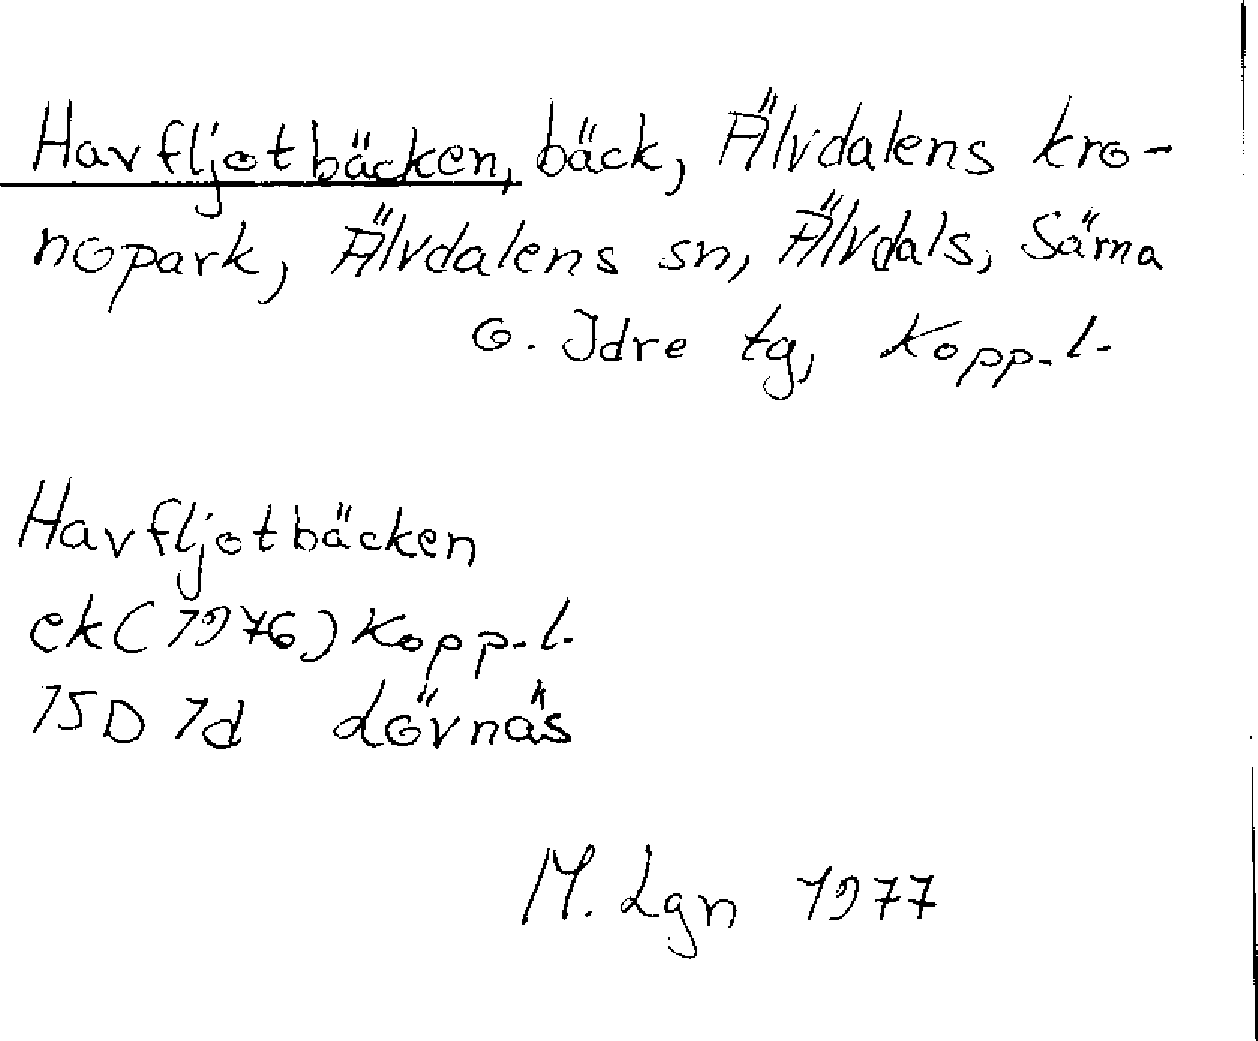 Havfljotbäcken, bäck, Älvdalens kro-
nopark, Älvdalens sn, Älvdals, Särna
o. Idre tg, Kopp.l.
Havfljotbäcken
ek(1976) Kopp.l.
15D 1d Lövnäs
M. Lgn 1977